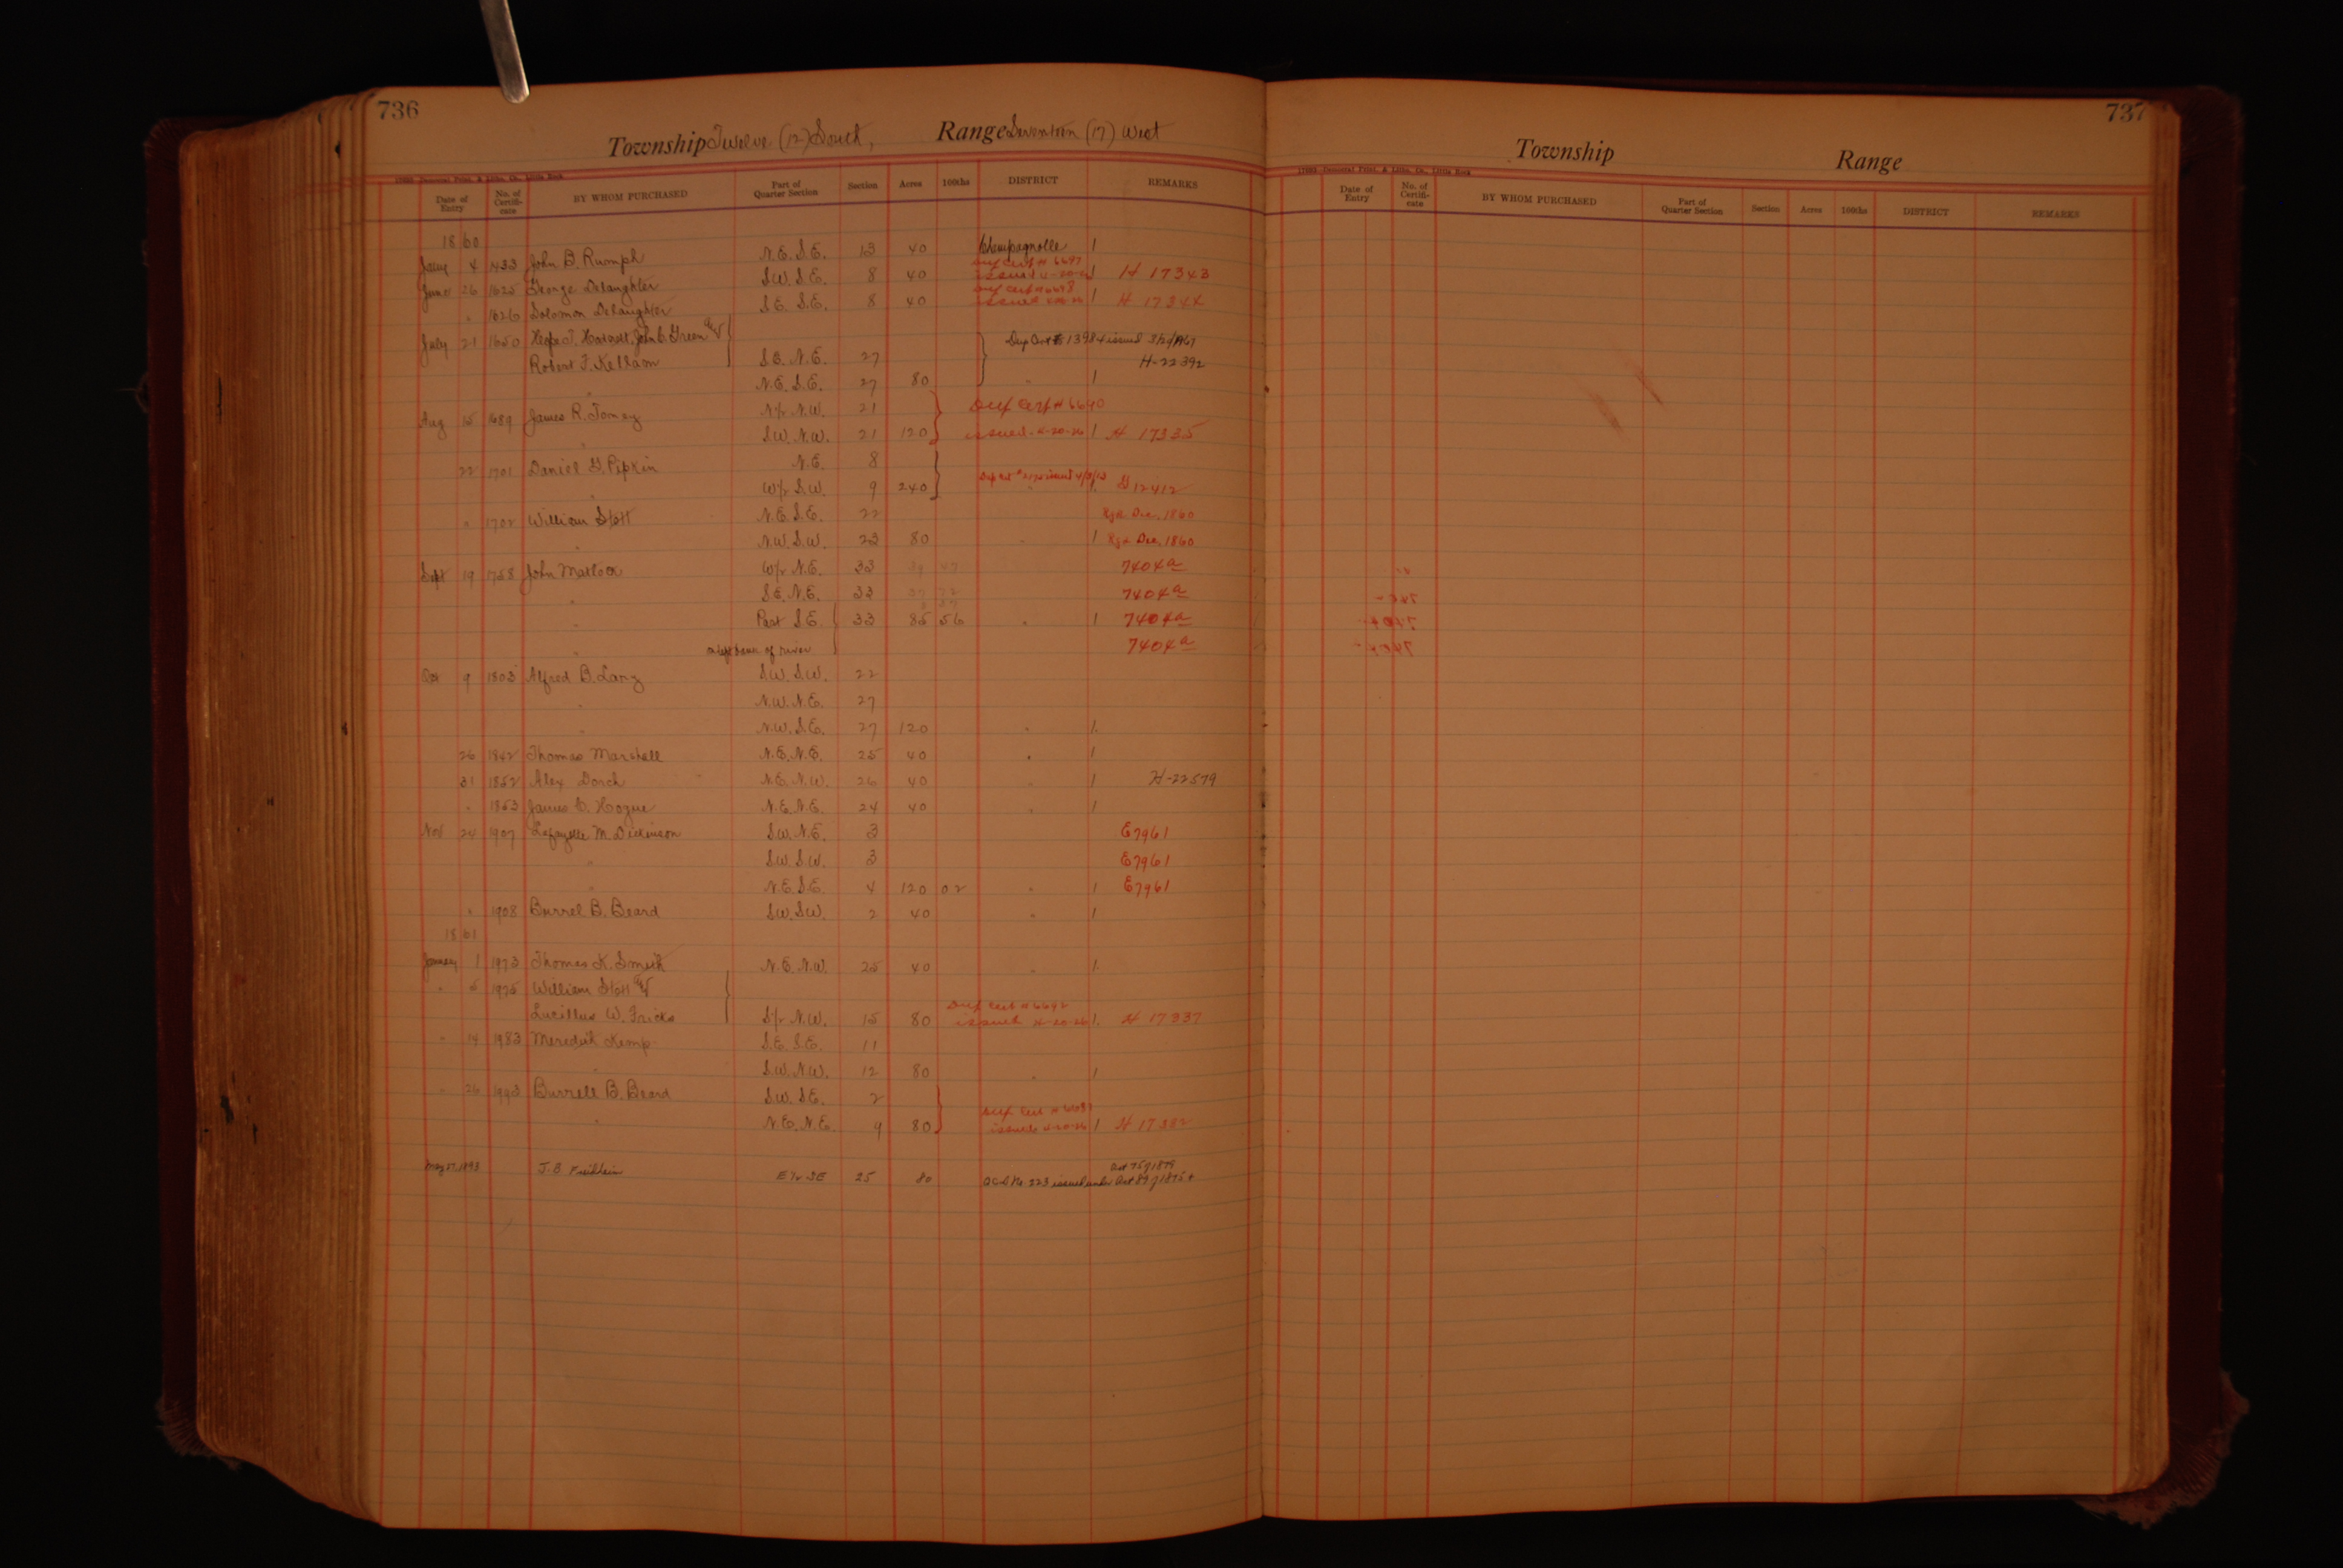 736
Township Twelve (12) South, Range Seventeen (17) West
Date of Entry No. of Certifi-cate BY WHOM PURCHASED Part of Quarter Section Section Acres 100ths DISTRICT REMARKS
1860
4 1433 John B. Rumph N.E. S.E. 13 40 Champagnolle 1
June 26 1625 George Delaughter S.W. S.E. 8 40 issued 4-20-26 1 H 17343
" 1626 Solomon Delaughter S.E. S.E. 8 40 issued 1 H 17344
July 21 1650 John C. Green &
Robert F. Kellam S.E. N.E. 27 Dup Cert # 13984 issued H-22392
" N.E. S.E. 27 80 " 1
Aug 15 1689 James R. Tomey N/2 N.W. 21 Dup Cert # 6690
" S.W. N.W. 21 120 issued 4-20-26 1 H 17335
22 1701 Daniel G. Pipkin N.E. 8
" W/2 S.W. 9 240 " 1 G 12412
" 1702 William Stott N.E. S.E. 22 Dec. 1860
" N.W. S.W. 23 80 " 1 Dec. 1860
Sept 19 1758 John Matlock W/2 N.E. 33 39 47 7404a
" S.E. N.E. 33 7404a
" Part S.E. 33 85 56 " 1 7404a
" of river 7404a
Oct 9 1803 Alfred B. Lang S.W. S.W. 22
" N.W. N.E. 27
" N.W. S.E. 27 120 " 1
26 1842 Thomas Marshall N.E. N.E. 25 40 " 1
31 1852 Alex Dorch N.E. N.W. 26 40 " 1 H-22579
" 1853 James C. Hogue N.E. N.E. 24 40 " 1
Nov 24 1907 Lafayette M. Dickinson S.W. N.E. 3 E7961
" S.W. S.W. 3 E7961
" N.E. S.E. 4 120 02 " 1 E7961
" 1908 Burrel B. Beard S.W. S.W. 2 40 " 1
1861
January 1 1973 Thomas K. Smith N.E. N.W. 25 40 " 1
" 5 1975 William Stott &
Lucillus W. Fricks S/2 N.W. 15 80 Dup Cert # 6692 issued 4-20-26 1 H 17337
" 14 1983 Meredith Kemp S.E. S.E. 11
" S.W. N.W. 12 80 " 1
" 26 1993 Burrell B. Beard S.W. S.E. 2
" N.E. N.E. 9 80 Dup Cert issued 4-20-26 1 H 17382
May 27, 1893 J. B. E 1/2 SE 25 80 No 223 issued under Act
737
Township Range
Date of Entry No. of Certifi-cate BY WHOM PURCHASED Part of Quarter Section Section Acres 100ths DISTRICT REMARKS